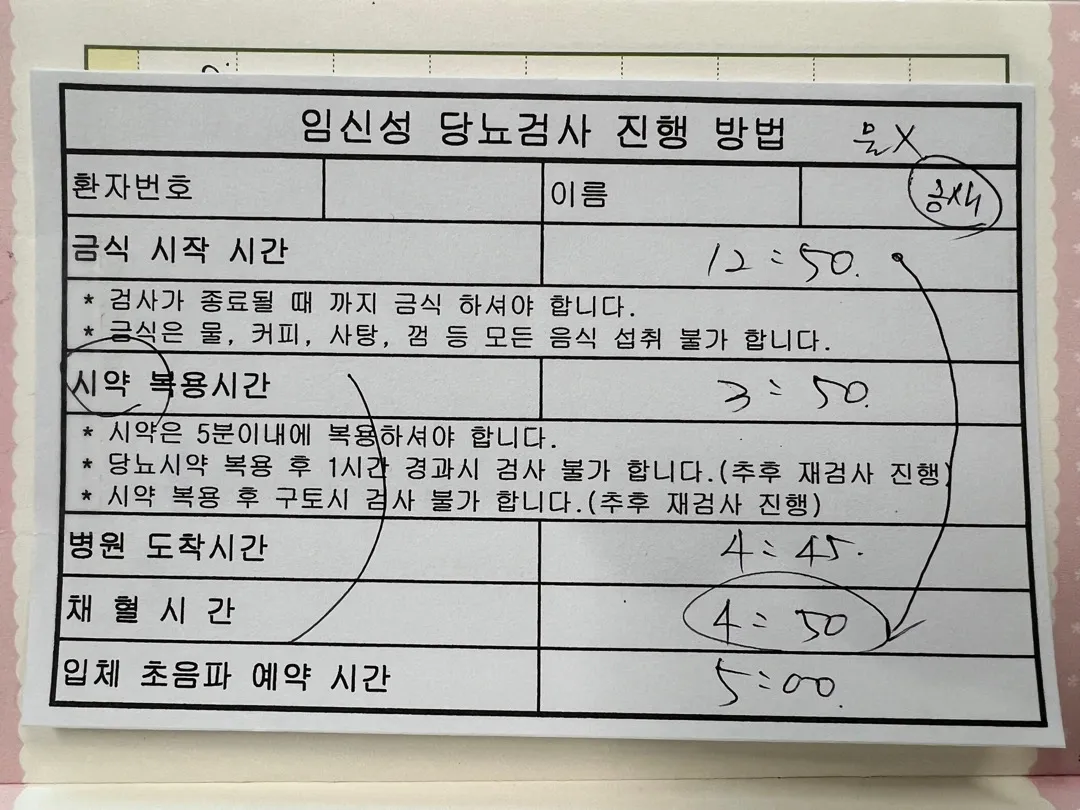 임신성 당뇨검사 진행 방법 물X
환자번호 이름 금식
금식 시작 시간 12:50.
* 검사가 종료될 때 까지 금식 하셔야 합니다.
* 금식은 물, 커피, 사탕, 껌 등 모든 음식 섭취 불가 합니다.
시약 복용시간 3:50.
* 시약은 5분이내에 복용하셔야 합니다.
* 당뇨시약 복용 후 1시간 경과시 검사 불가 합니다.(추후 재검사 진행)
* 시약 복용 후 구토시 검사 불가 합니다.(추후 재검사 진행)
병원 도착시간 4:45.
채 혈 시 간 4:50
입체 초음파 예약 시간 5:00.